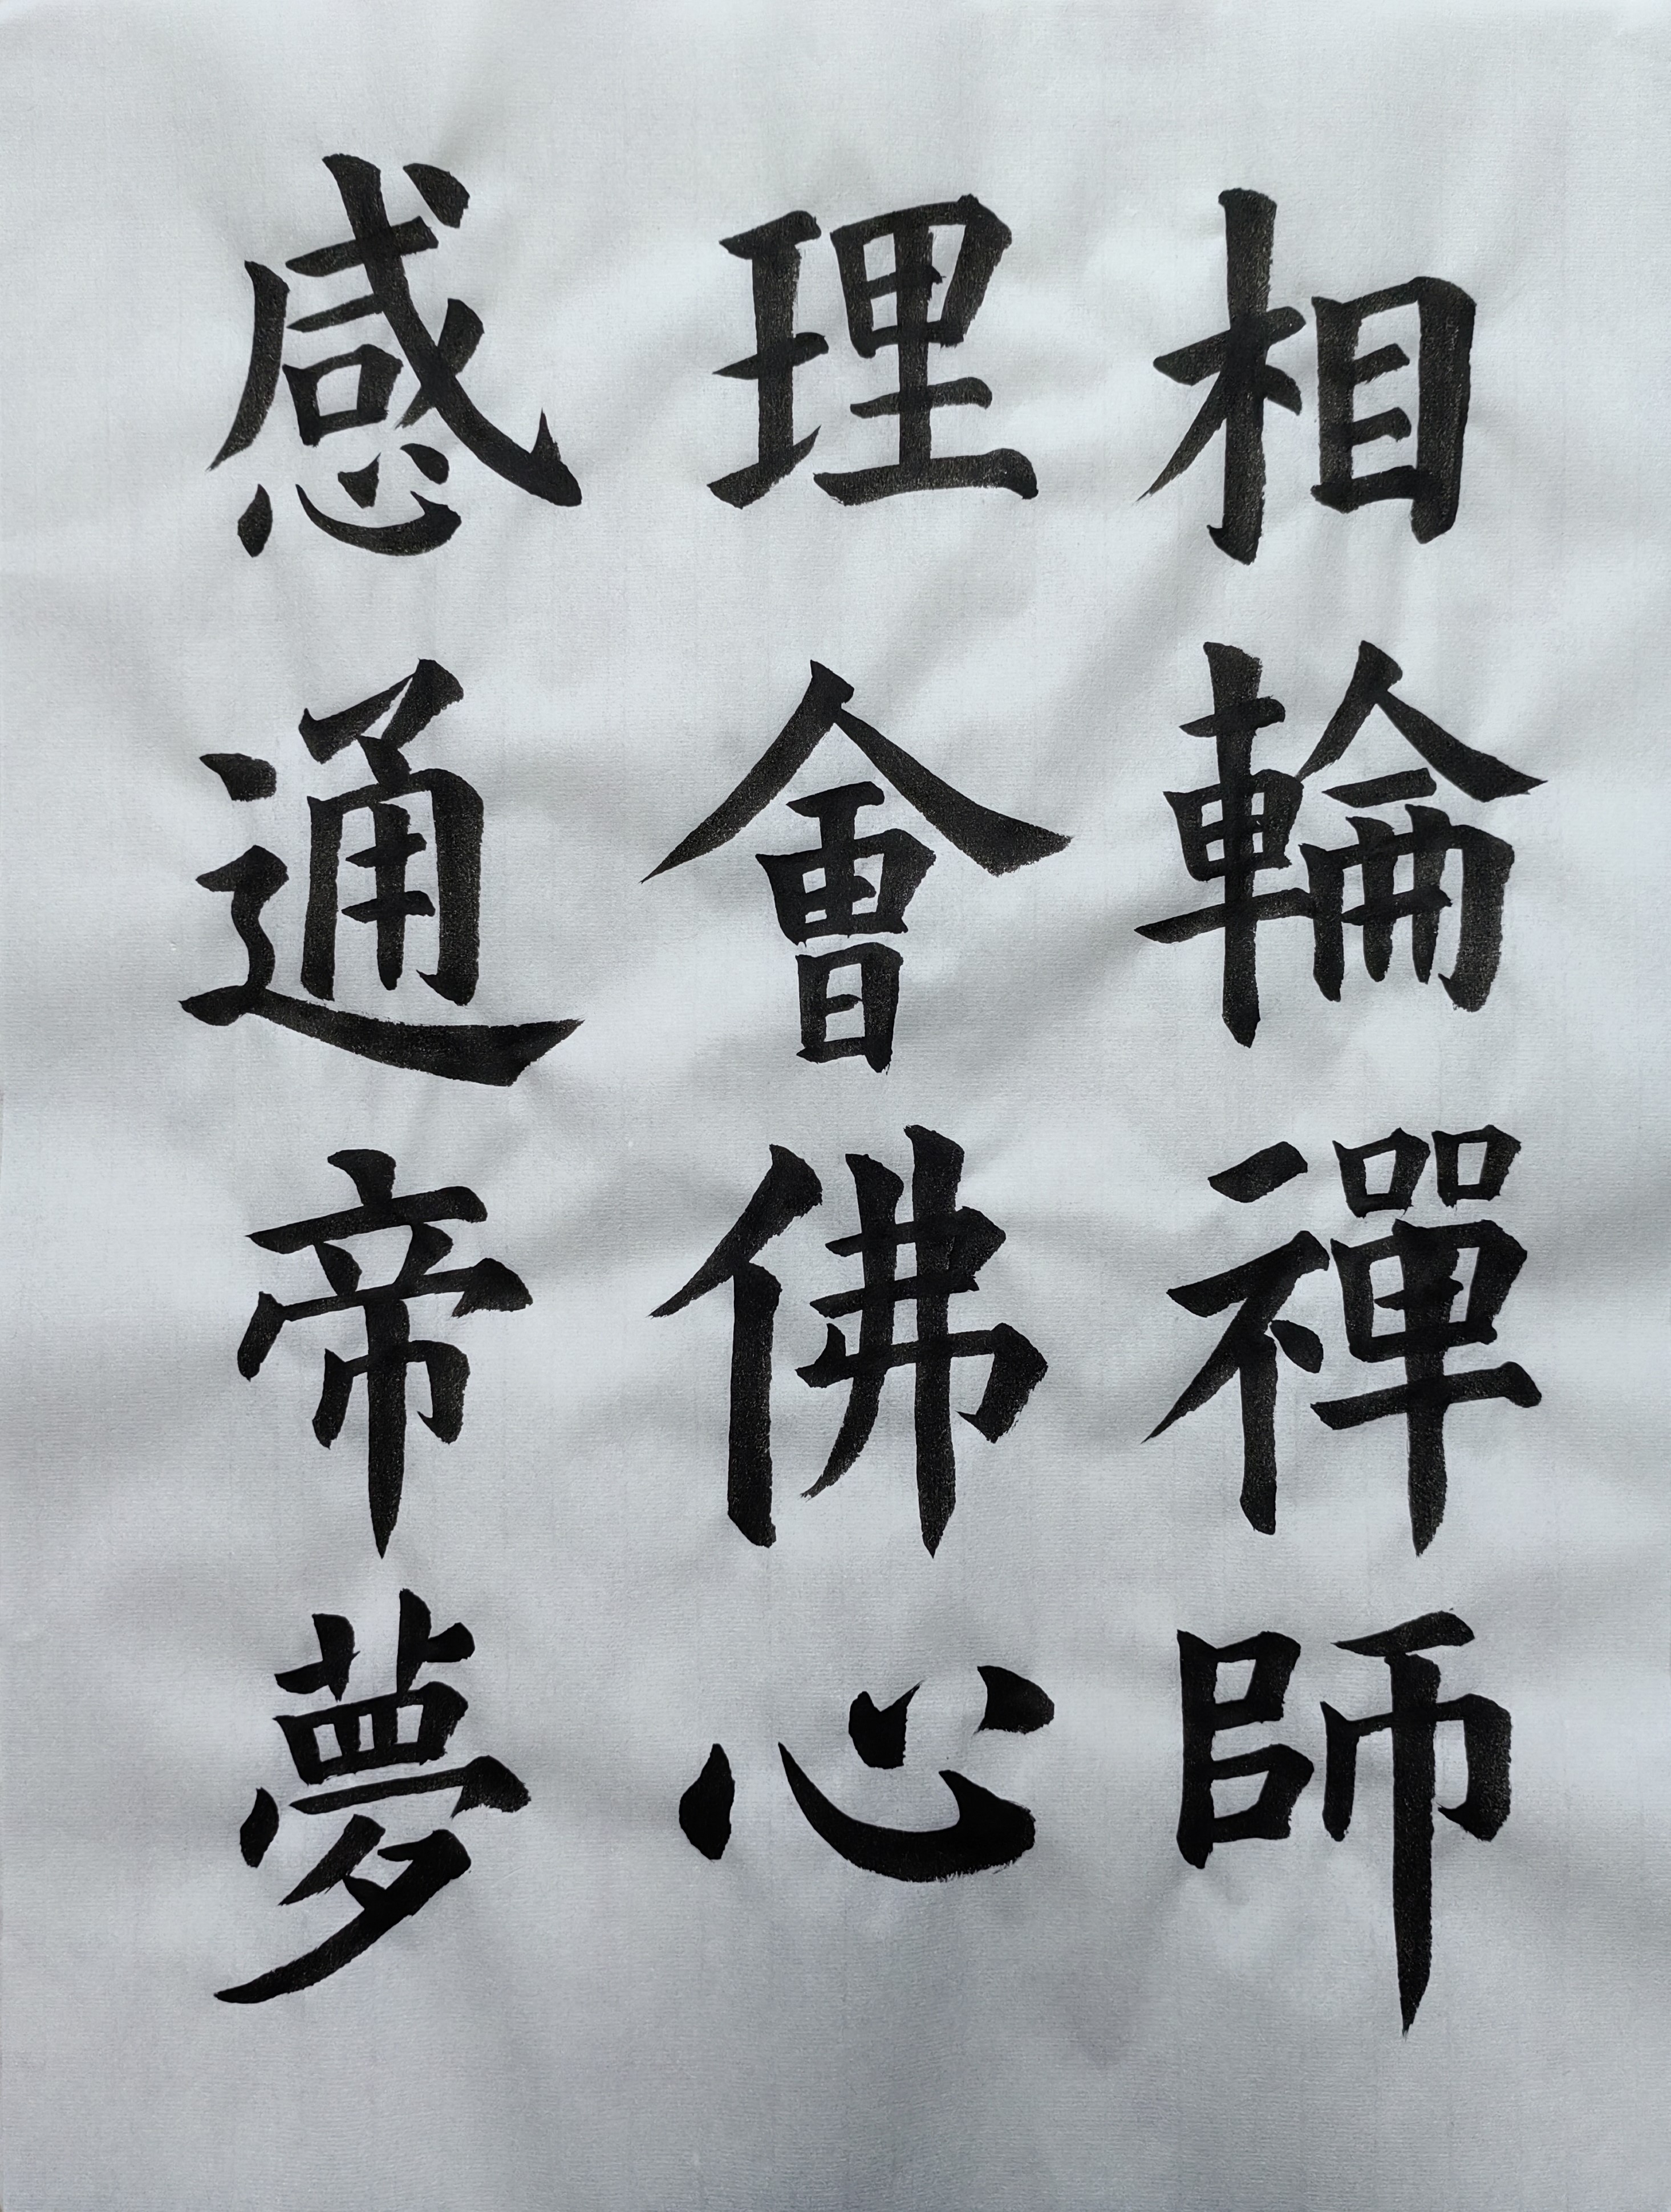 相輪禪師
理會佛心
感通帝夢